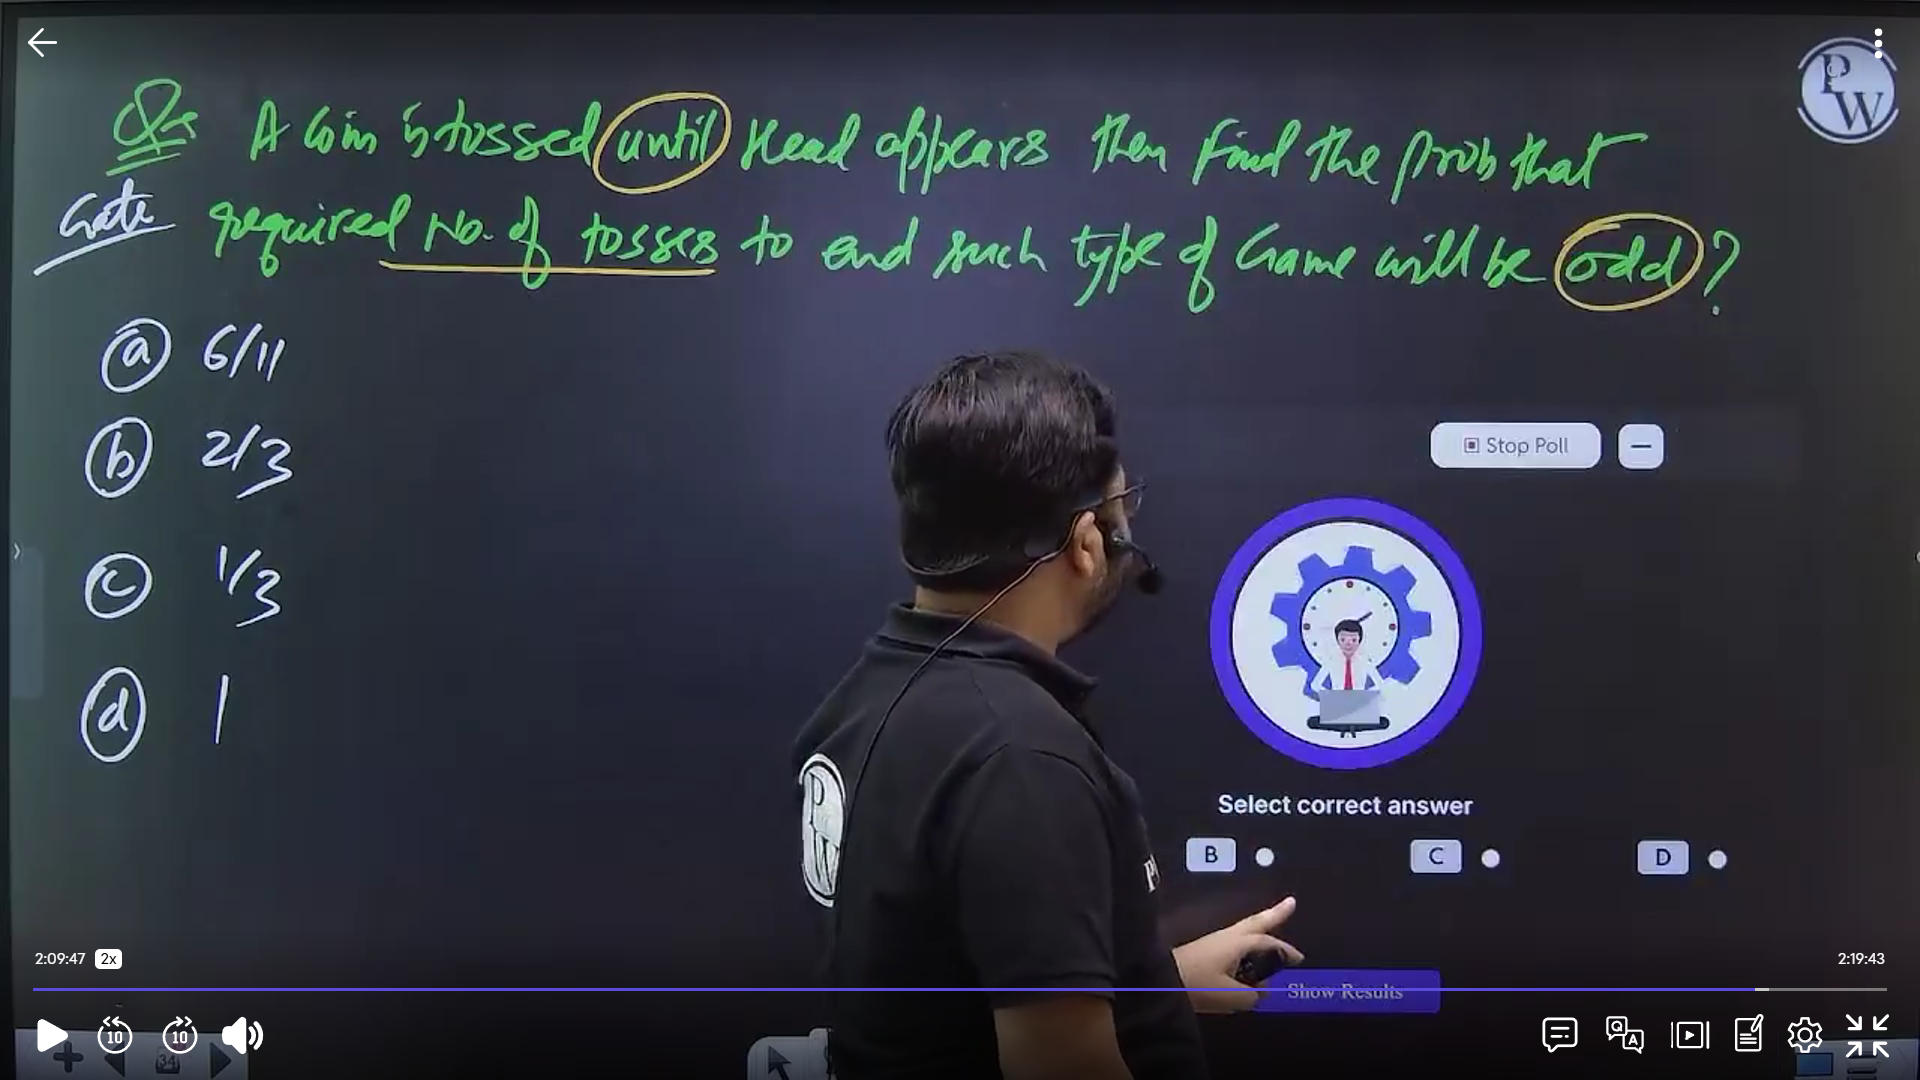 Qs A coin is tossed until Head appears then find the prob that
Gate required No. of tosses to end such type of Game will be odd?
a 6/11
b 2/3
c 1/3
d 1
PW
Stop Poll
Select correct answer
B C D
Show Results
PW
P
2:09:47 2x
2:19:43
10 10
34
Q A